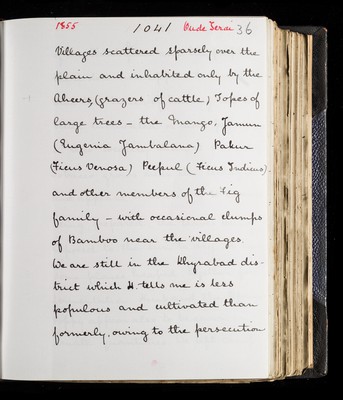 1855 1041 Oude Terai 36
Villages scattered sparsely over the
plain and inhabited only by the
Aheers, (grazers of cattle) Topes of
large trees – the Mango, Jamun
(Eugenia Jambalana) Pakur
(Ficus Venosa) Peepul (Ficus Indicus)
and other members of the Fig
family – with occasional clumps
of Bamboo near the villages.
We are still in the Khyrabad dis-
trict which H. tells me is less
populous and cultivated than
formerly, owing to the persecution